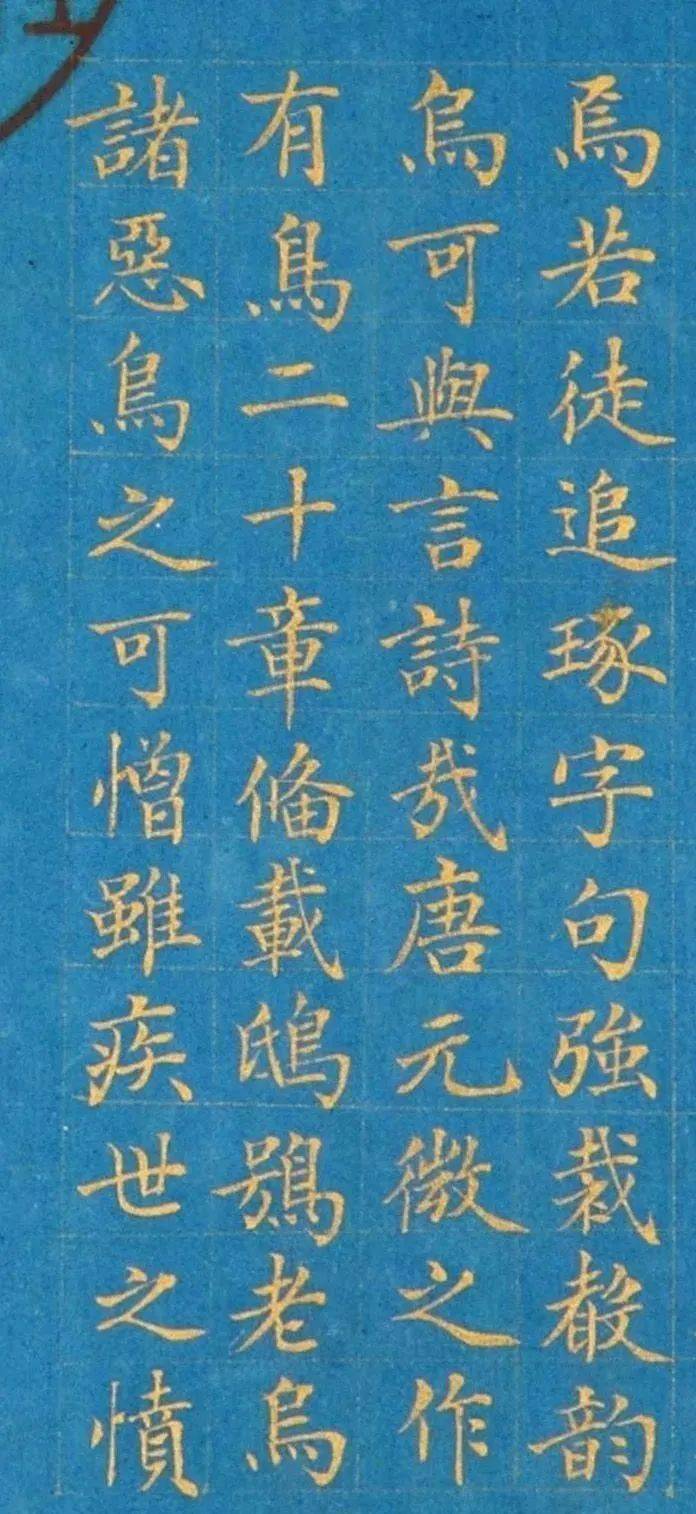 焉若徒追琢字句強裁韵
烏可與言詩哉唐元微之作
有鳥二十章偹載鴟鴞老烏
諸惡鳥之可憎雖疾世之憤